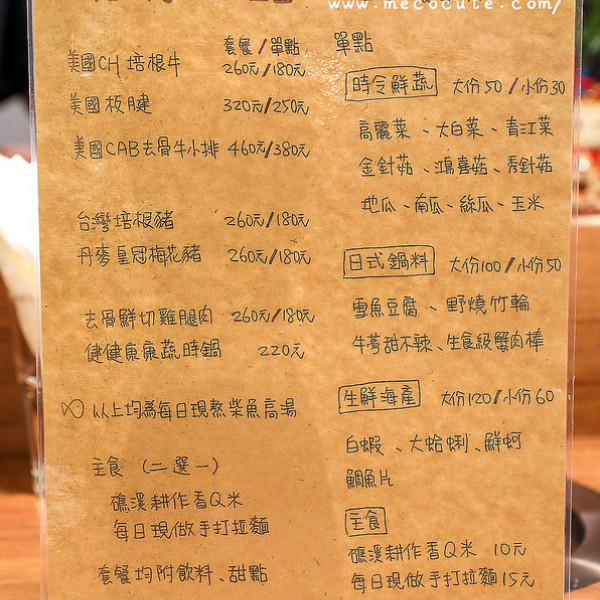 www.mecocute.com/
套餐/單點
美國CH培根牛 260元/180元
美國板腱 320元/250元
美國CAB去骨牛小排 460元/380元
台灣培根豬 260元/180元
丹麥皇冠梅花豬 260元/180元
去骨鮮切雞腿肉 260元/180元
健健康康蔬時鍋 220元
以上均為每日現熬柴魚高湯
主食 (二選一)
礁溪耕作香Q米
每日現做手打拉麵
套餐均附飲料、甜點
單點
時令鮮蔬 大份50/小份30
高麗菜、大白菜、青江菜
金針菇、鴻喜菇、秀針菇
地瓜、南瓜、絲瓜、玉米
日式鍋料 大份100/小份50
鱈魚豆腐、野燒竹輪
牛蒡甜不辣、生食級蟹肉棒
生鮮海產 大份120/小份60
白蝦、大蛤蜊、鮮蚵
鯛魚片
主食
礁溪耕作香Q米 10元
每日現做手打拉麵15元